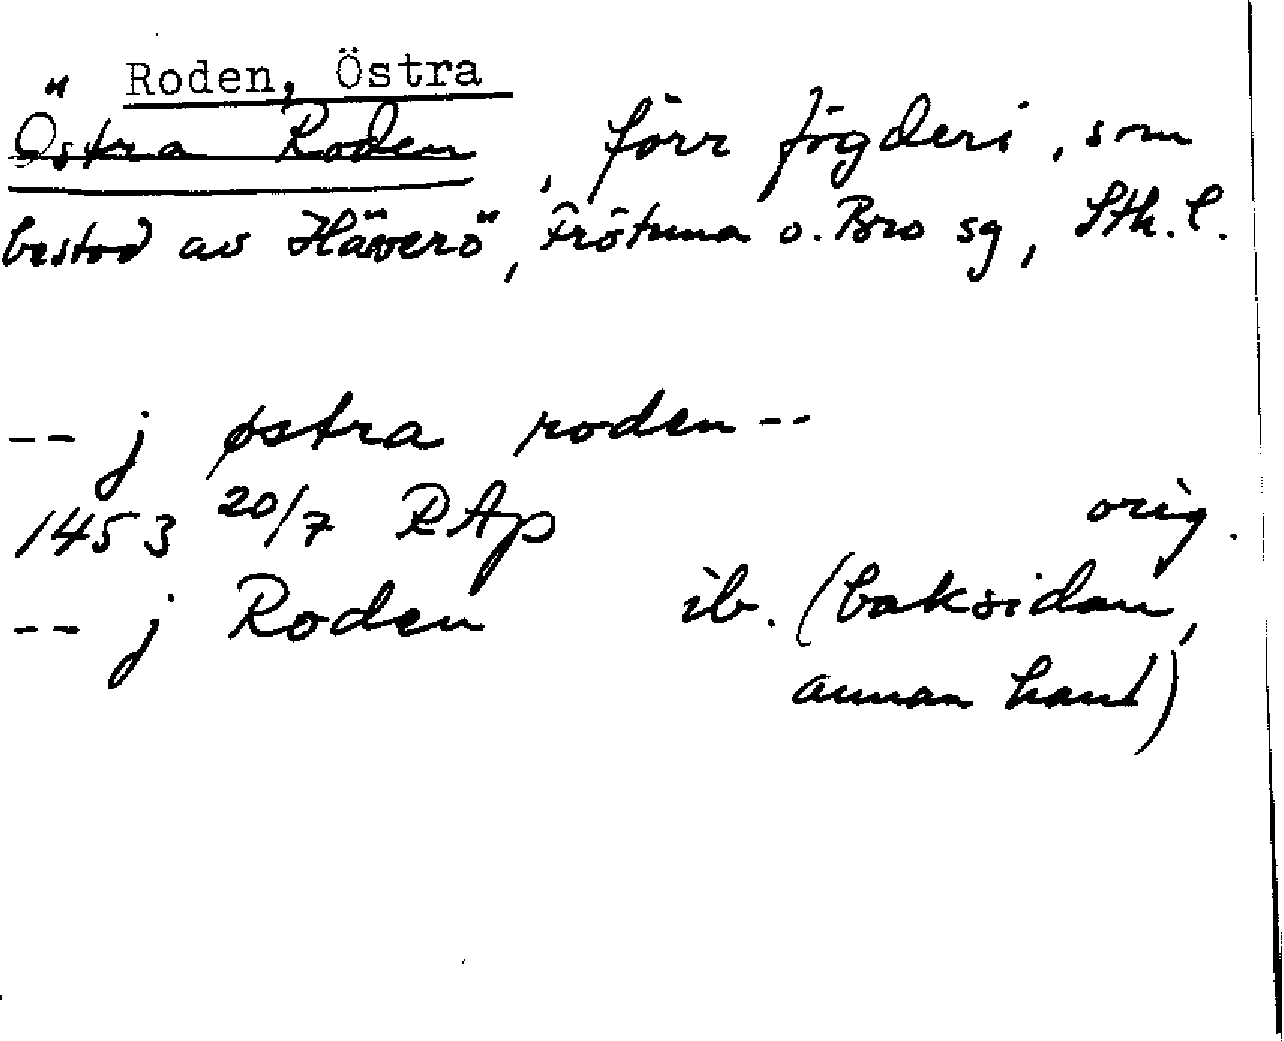 Roden, Östra
Östra Roden, förr fögderi, som
bestod av Häverö, Frötuna o. Bro sg, Sth. l.
-- j østra roden --
1453 20/7 RAp orig.
-- j Roden ib. (baksidan,
annan hand)